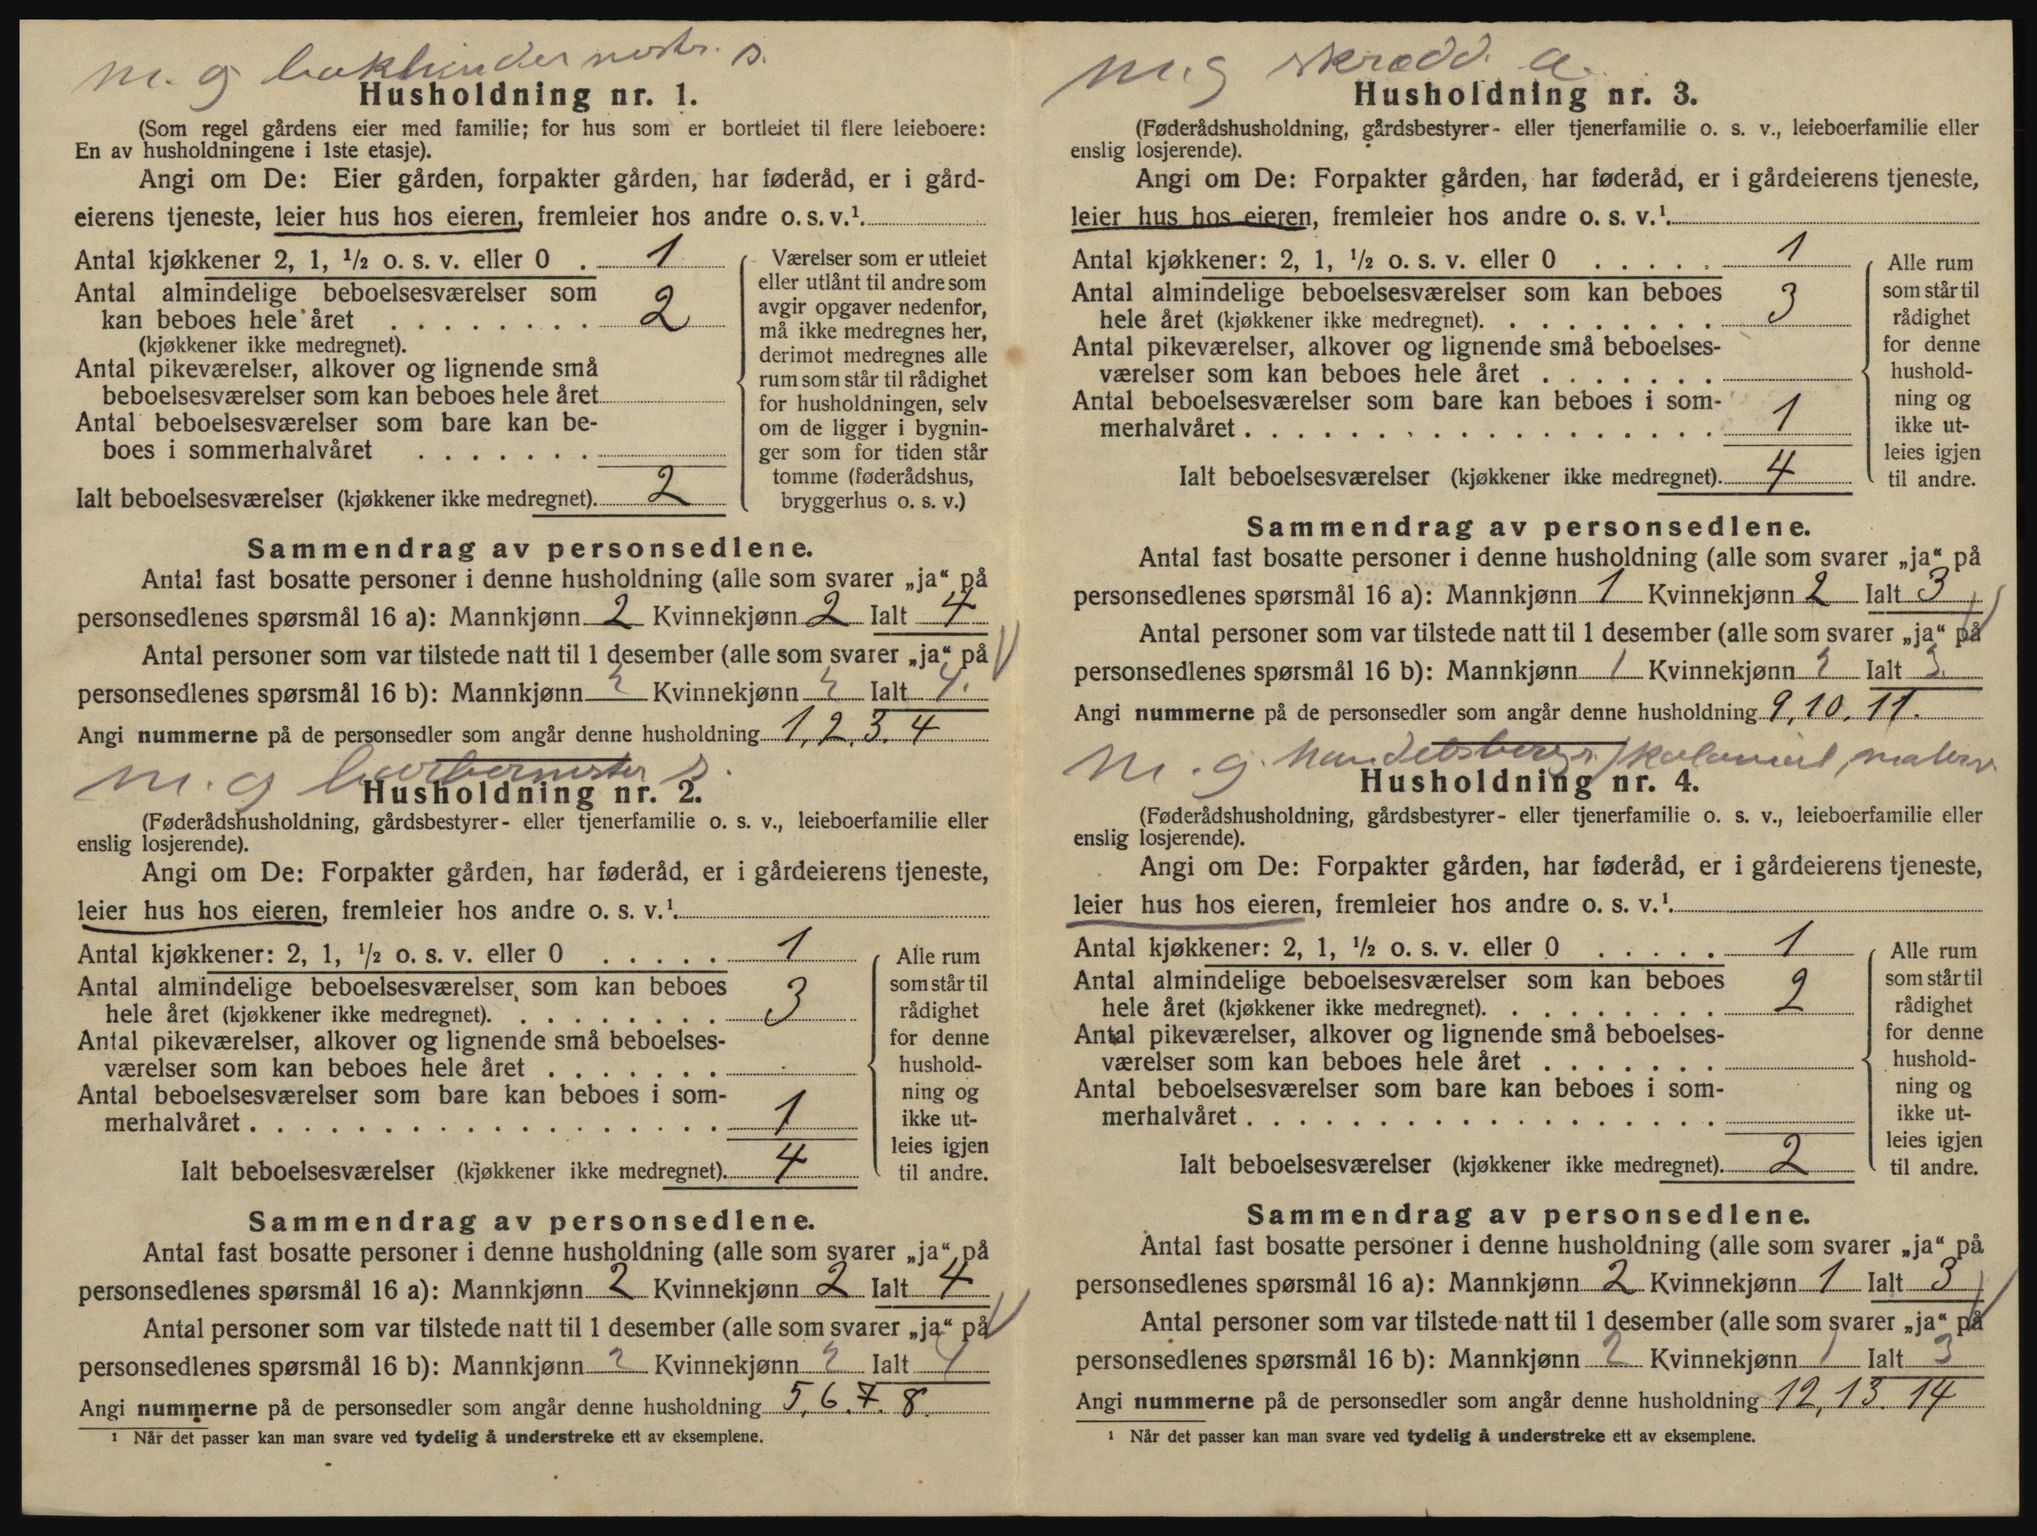 m. g bokbindermester. s.
Husholdning nr. 1.
(Som regel gårdens eier med familie; for hus som er bortleiet til flere leieboere:
En av husholdningene i 1ste etasje).
Angi om De: Eier gården, forpakter gården, har føderåd, er i gård-
eierens tjeneste, leier hus hos eieren, fremleier hos andre o. s. v.¹.
Antal kjøkkener 2, 1, ½ o. s. v. eller 0 . 1
Antal almindelige beboelsesværelser som
kan beboes hele året . . . . . . . . 2
(kjøkkener ikke medregnet).
Antal pikeværelser, alkover og lignende små
beboelsesværelser som kan beboes hele året
Antal beboelsesværelser som bare kan be-
boes i sommerhalvåret . . . . . . .
Ialt beboelsesværelser (kjøkkener ikke medregnet). 2
Værelser som er utleiet
eller utlånt til andre som
avgir opgaver nedenfor,
må ikke medregnes her,
derimot medregnes alle
rum som står til rådighet
for husholdningen, selv
om de ligger i bygnin-
ger som for tiden står
tomme (føderådshus,
bryggerhus o. s. v.)
Sammendrag av personsedlene.
Antal fast bosatte personer i denne husholdning (alle som svarer „ja“ på
personsedlenes spørsmål 16 a): Mannkjønn 2 Kvinnekjønn 2 Ialt 4
Antal personer som var tilstede natt til 1 desember (alle som svarer „ja“ på
personsedlenes spørsmål 16 b): Mannkjønn 2 Kvinnekjønn 2 Ialt 4.
Angi nummerne på de personsedler som angår denne husholdning 1, 2, 3. 4
m. g barbermester s.
Husholdning nr. 2.
(Føderådshusholdning, gårdsbestyrer- eller tjenerfamilie o. s. v., leieboerfamilie eller
enslig losjerende).
Angi om De: Forpakter gården, har føderåd, er i gårdeierens tjeneste,
leier hus hos eieren, fremleier hos andre o. s. v.¹.
Antal kjøkkener: 2, 1, ½ o. s. v. eller 0 . . . . . 1
Antal almindelige beboelsesværelser som kan beboes
hele året (kjøkkener ikke medregnet). . . . . . . . . 3
Antal pikeværelser, alkover og lignende små beboelses-
værelser som kan beboes hele året . . . . . . .
Antal beboelsesværelser som bare kan beboes i som-
merhalvåret . . . . . . . . . . . . . . . . . . 1
Ialt beboelsesværelser (kjøkkener ikke medregnet). 4
Alle rum
som står til
rådighet
for denne
hushold-
ning og
ikke ut-
leies igjen
til andre.
Sammendrag av personsedlene.
Antal fast bosatte personer i denne husholdning (alle som svarer „ja“ på
personsedlenes spørsmål 16 a): Mannkjønn 2 Kvinnekjønn 2 Ialt 4
Antal personer som var tilstede natt til 1 desember (alle som svarer „ja“ på
personsedlenes spørsmål 16 b): Mannkjønn 2 Kvinnekjønn 2 Ialt 4
Angi nummerne på de personsedler som angår denne husholdning 5, 6. 7. 8.
¹ Når det passer kan man svare ved tydelig å understreke ett av eksemplene.
m. g skredd. a.
Husholdning nr. 3.
(Føderådshusholdning, gårdsbestyrer- eller tjenerfamilie o. s. v., leieboerfamilie eller
enslig losjerende).
Angi om De: Forpakter gården, har føderåd, er i gårdeierens tjeneste,
leier hus hos eieren, fremleier hos andre o. s. v.¹.
Antal kjøkkener: 2, 1, ½ o. s. v. eller 0 . . . . . 1
Antal almindelige beboelsesværelser som kan beboes
hele året (kjøkkener ikke medregnet). . . . . . . . . 3
Antal pikeværelser, alkover og lignende små beboelses-
værelser som kan beboes hele året . . . . . . .
Antal beboelsesværelser som bare kan beboes i som-
merhalvåret . . . . . . . . . . . . . . . . . . 1
Ialt beboelsesværelser (kjøkkener ikke medregnet). 4
Alle rum
som står til
rådighet
for denne
hushold-
ning og
ikke ut-
leies igjen
til andre.
Sammendrag av personsedlene.
Antal fast bosatte personer i denne husholdning (alle som svarer „ja“ på
personsedlenes spørsmål 16 a): Mannkjønn 1 Kvinnekjønn 2 Ialt 3
Antal personer som var tilstede natt til 1 desember (alle som svarer „ja“ på
personsedlenes spørsmål 16 b): Mannkjønn 1 Kvinnekjønn 2 Ialt 3.
Angi nummerne på de personsedler som angår denne husholdning 9, 10. 11.
m. g. handelsbest. /kolonial,
Husholdning nr. 4.
(Føderådshusholdning, gårdsbestyrer- eller tjenerfamilie o. s. v., leieboerfamilie eller
enslig losjerende).
Angi om De: Forpakter gården, har føderåd, er i gårdeierens tjeneste,
leier hus hos eieren, fremleier hos andre o. s. v.¹.
Antal kjøkkener: 2, 1, ½ o. s. v. eller 0 . . . . . 1
Antal almindelige beboelsesværelser som kan beboes
hele året (kjøkkener ikke medregnet). . . . . . . . . 2
Antal pikeværelser, alkover og lignende små beboelses-
værelser som kan beboes hele året . . . . . . .
Antal beboelsesværelser som bare kan beboes i som-
merhalvåret . . . . . . . . . . . . . . . . . .
Ialt beboelsesværelser (kjøkkener ikke medregnet). 2
Alle rum
som står til
rådighet
for denne
hushold-
ning og
ikke ut-
leies igjen
til andre.
Sammendrag av personsedlene.
Antal fast bosatte personer i denne husholdning (alle som svarer „ja“ på
personsedlenes spørsmål 16 a): Mannkjønn 2 Kvinnekjønn 1 Ialt 3
Antal personer som var tilstede natt til 1 desember (alle som svarer „ja“ på
personsedlenes spørsmål 16 b): Mannkjønn 2 Kvinnekjønn 1 Ialt 3
Angi nummerne på de personsedler som angår denne husholdning 12, 13. 14
¹ Når det passer kan man svare ved tydelig å understreke ett av eksemplene.